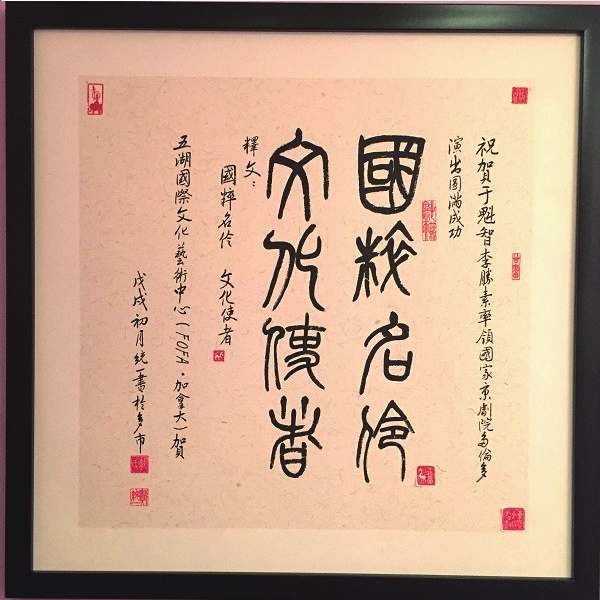 祝賀于魁智李勝素率領國家京劇院多倫多
演出圓滿成功
國粹名伶
文化使者
釋文：
國粹名伶 文化使者
五湖國際文化藝術中心（FOFA·加拿大）賀
戊戌初月統一書於多市